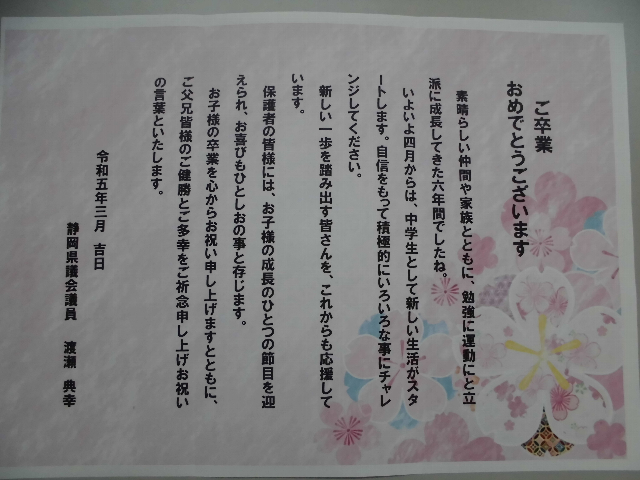 ご卒業
おめでとうございます
素晴らしい仲間や家族とともに、勉強に運動にと立
派に成長してきた六年間でしたね。
いよいよ四月からは、中学生として新しい生活がスタ
ートします。自信をもって積極的にいろいろな事にチャレ
ンジしてください。
新しい一歩を踏み出す皆さんを、これからも応援して
います。
保護者の皆様には、お子様の成長のひとつの節目を迎
えられ、お喜びもひとしおの事と存じます。
お子様の卒業を心からお祝い申し上げますとともに、
ご父兄皆様のご健勝とご多幸をご祈念申し上げお祝い
の言葉といたします。
令和五年三月　吉日
静岡県議会議員　渡瀬　典幸